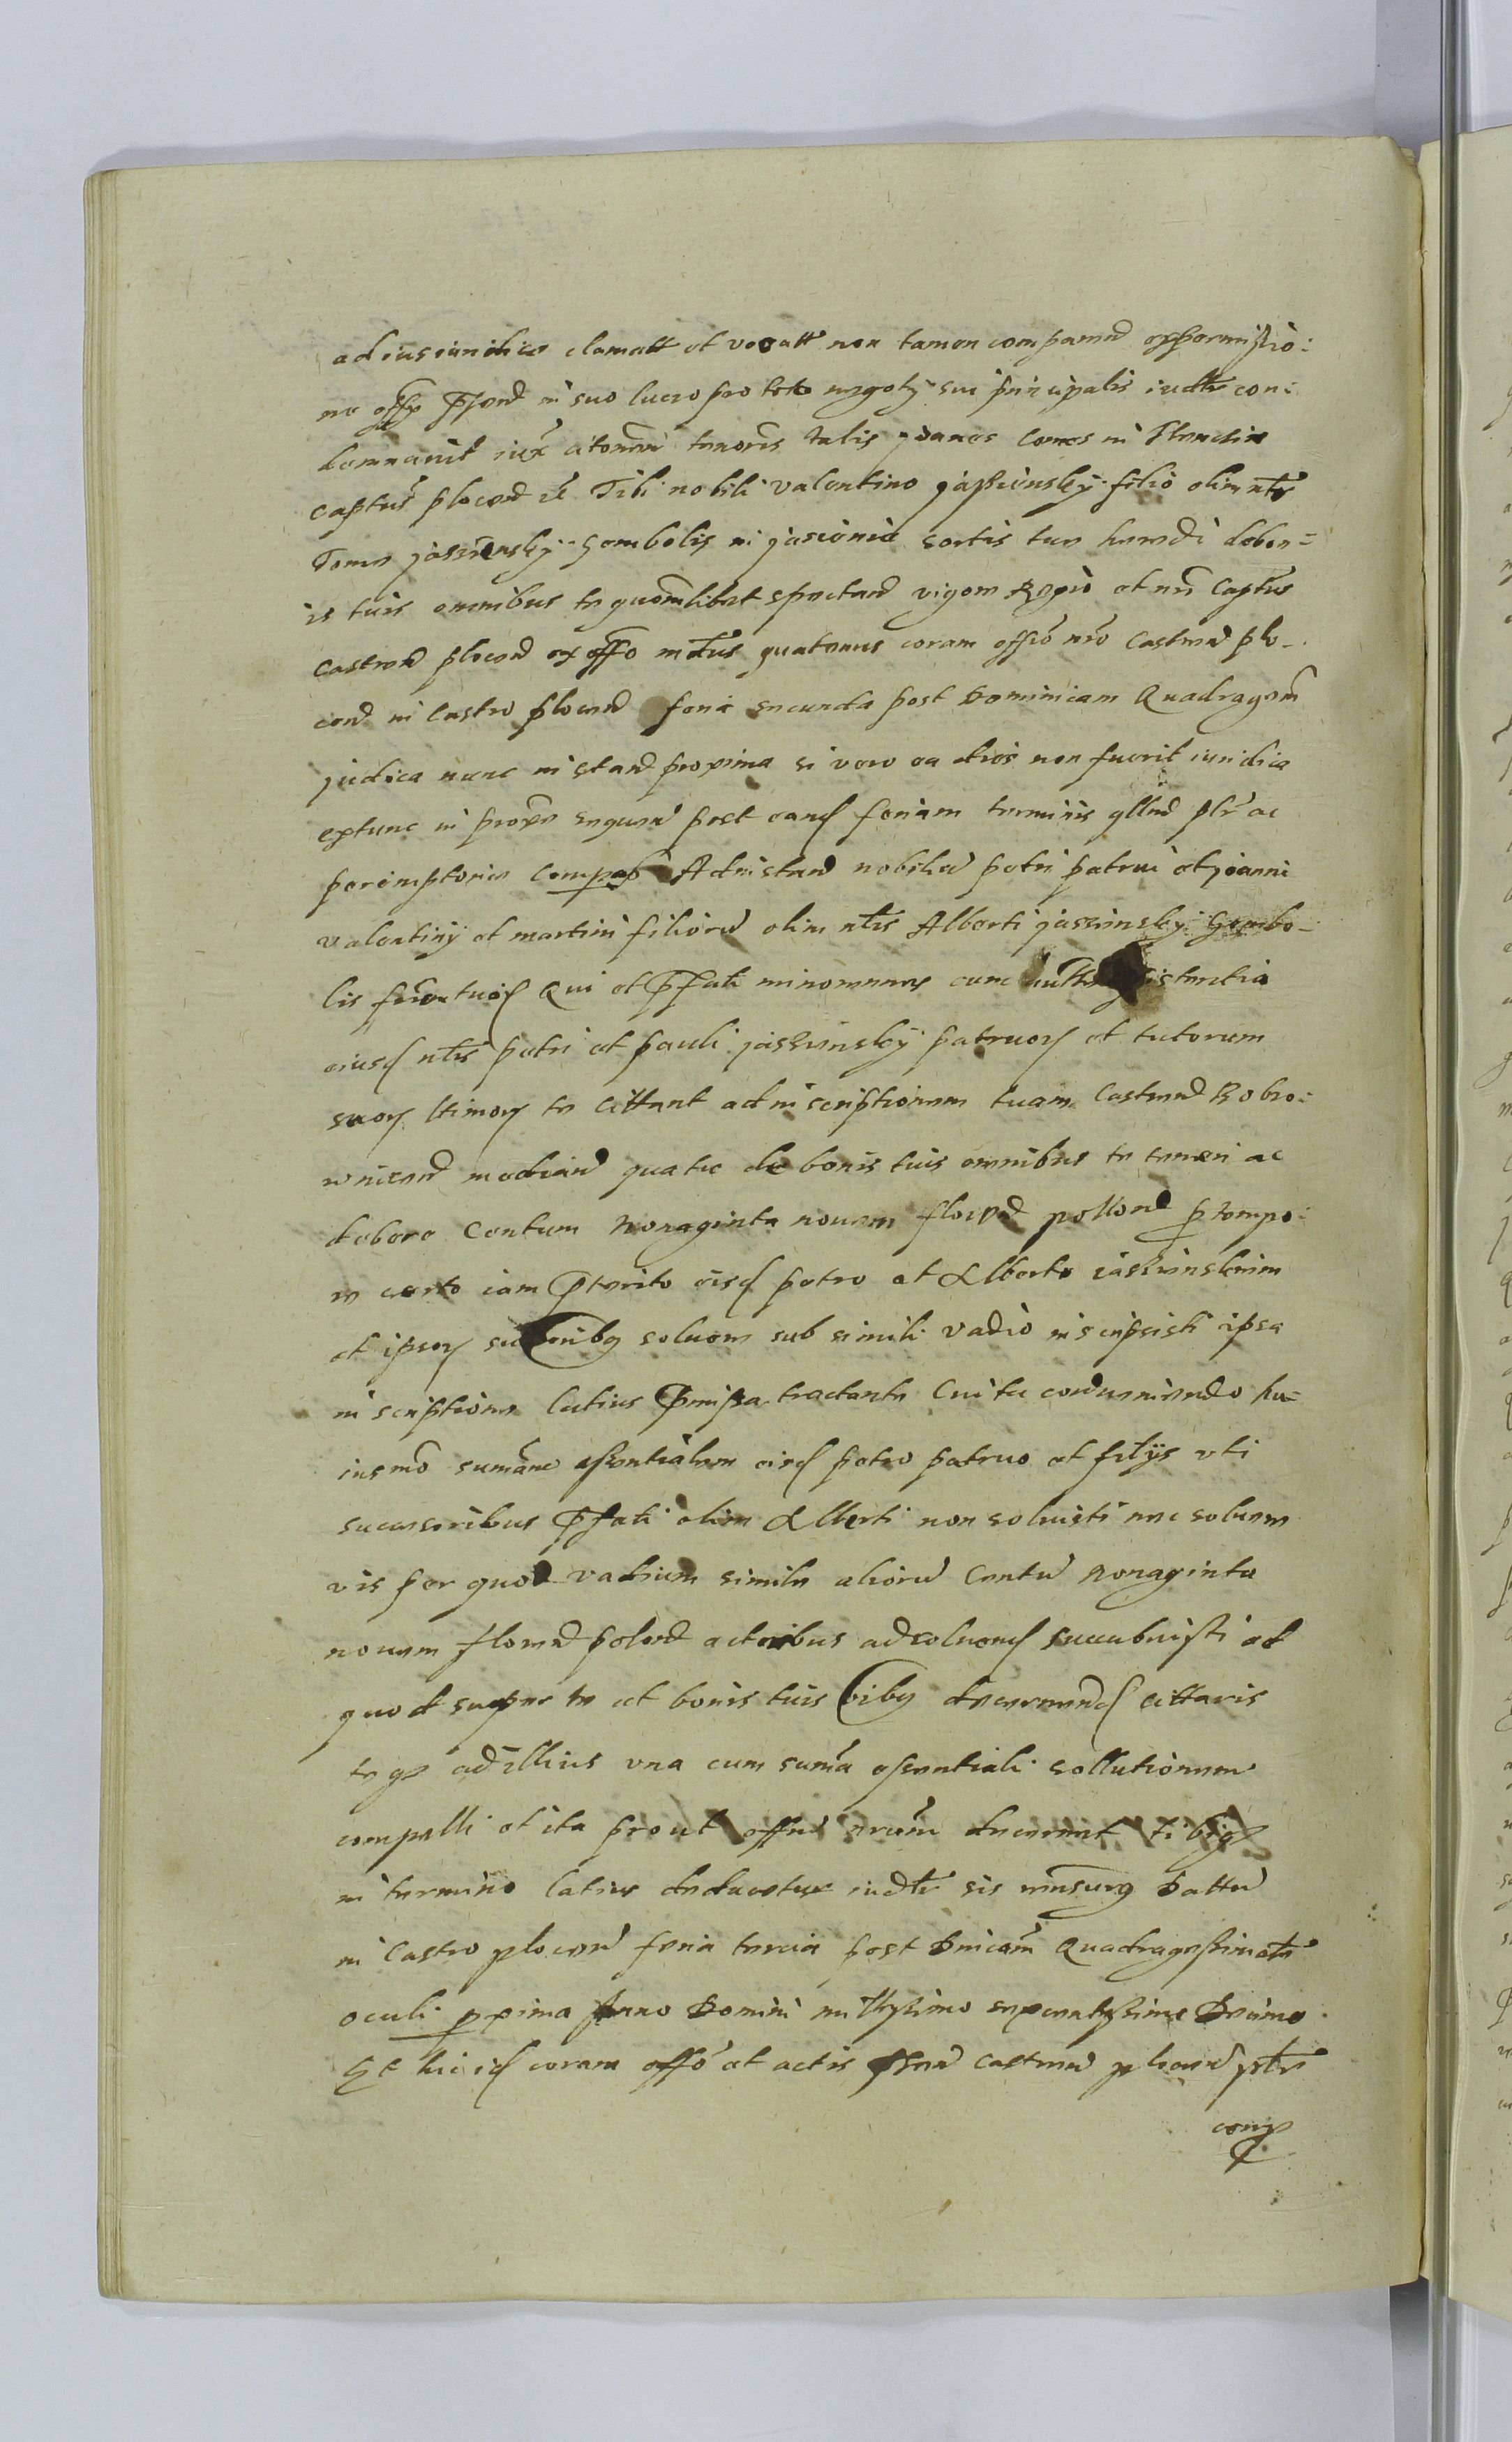 ad ius iuridice clamatt et vocatt non tamen comparend ex permissio:
ne offy pntend in suo lucro pro toto negotj sui principalis iudtr con:
demnavit iux a tenorem tenoris talis Joanes Comes in
captus plocend etc Tibi nobili Valentino Jasziensky filio olim nlis
Tome Jasziensky Gombolis in Jasionie sortis tue heredi debon=
is tuis omnibus te quomlibet spectand vigore Regio et nri Captus
castrend plocend ex offo mdtus quatenus coram offio nro Castrend plo-
cend in Castro plocend feria secunda post Dominicam Quadragem
Judica nunc instand proxima si vero ea dies non fuerit iuridica
extunc in proxe sequen post eand feriam terminis gllnd plr ac
peremptorie Compas Ad instand nobiliu petri patrui et Joanni
Valentinj et martini filioru olim nlis Alberti Jassinsky Gombo-
lis Qui et pfati minorennes cum assistentia
eiusd nlis petri et pauli Jasszinsky patruor et tutorum
suor ltimor te cittant ad inscriptionem tuam Castrend Bobro:
wnicend mediand qua te de bonis tuis omnibus te teneri ac
debere Centum Nonaginta novem florend pollond p tempo:
re certo iam pterito eisd petro et Alberto iasszinskim
et ipsor successoribq solvere sub simili vadio inscripsisti ipsa
inscriptione latius pmissa tractante Cui tu contraveniendo hu=
iusmo sumam essentialem eisd petro patruo et filijs vti
successoribus pfati olim Alberti non solvisti nec solvere
vis per quod vadium simile alioru Centu Nonaginta
novem florend polond actoribus ad solvend succubuisti et
quod super te et bonis tuis oibq decernend cittaris
teq ad illius una cum suma essentiali sollutionem
compelli et ita prout offm nrum decernet tibiq
in termino latius deducetur iudtr sis rensurq Dattu
in Castro plocen feria tercia post Dnicam Quadragessimale
oculi pxima Anno Domini millesimo sexcentessimo Decimo
Et hic id coram offo et actis pntn castrend plocend pstr
comp